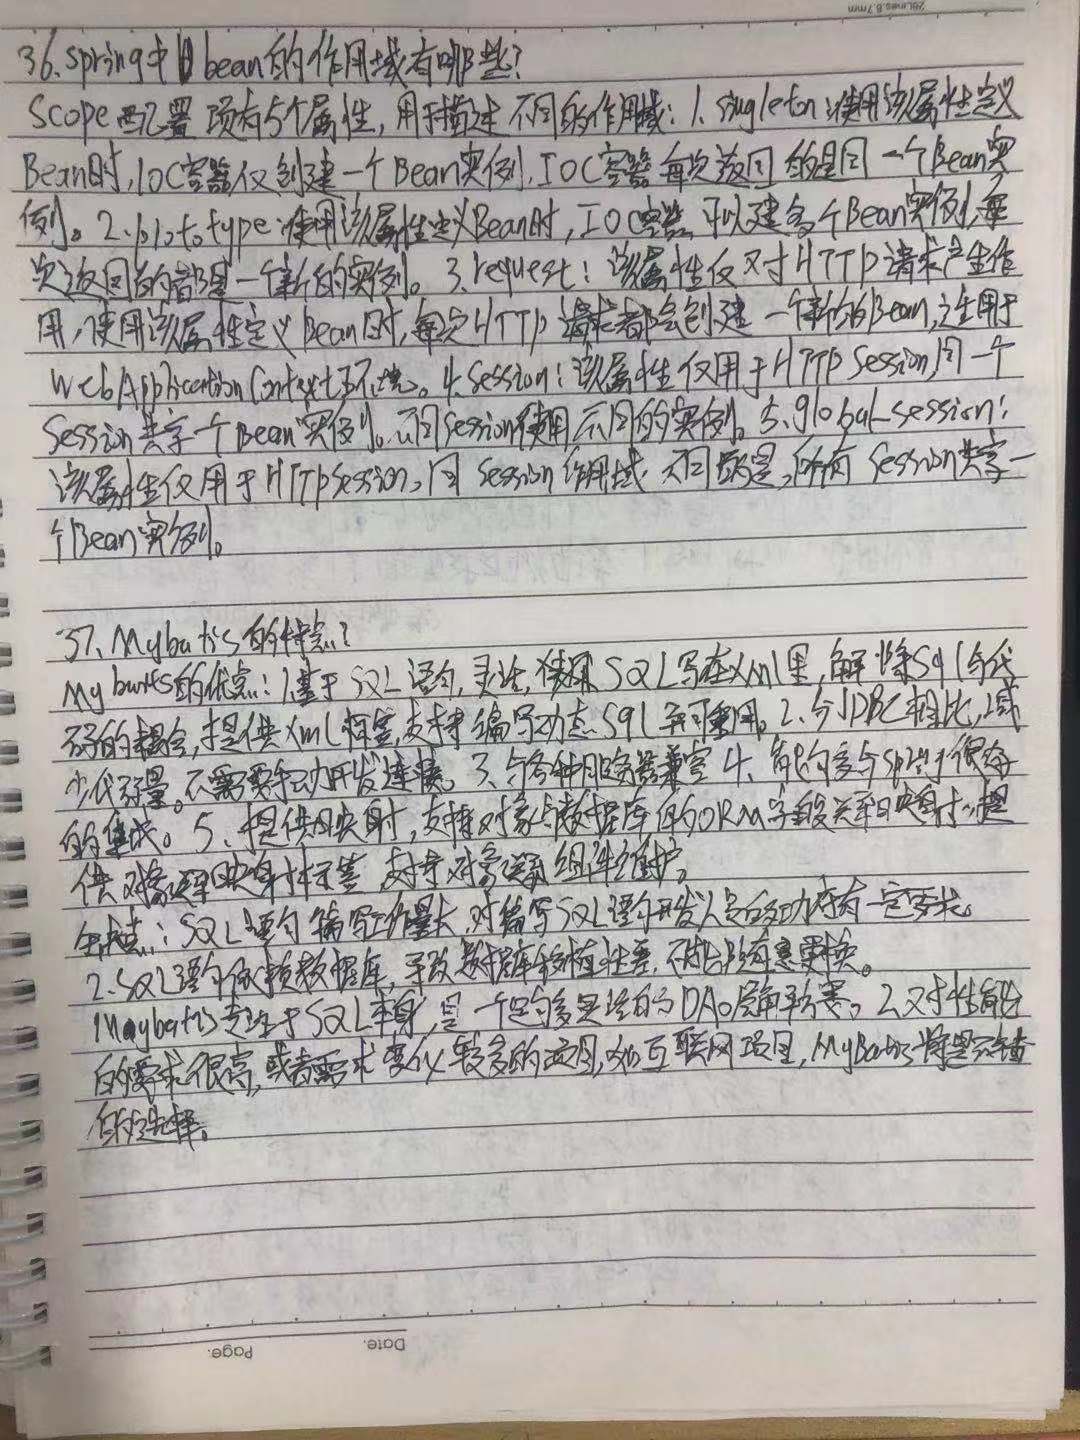 28Lines.8.7mm
36.spring中 bean的作用域有哪些?
Scope配置项有5个属性,用于描述不同的作用域:1.singleton:使用该属性定义
Bean时,IOC容器仅创建一个Bean实例,IOC容器每次返回的是同一个Bean实
例。2.prototype:使用该属性定义Bean时,IOC容器可以建多个Bean实例,每
次返回的都是一个新的实例。3.request:该属性仅对HTTP请求产生作
用,使用该属性定义Bean时,每次HTTP请求都会创建一个新的Bean,适用于
WebApplicationContext环境。4.Session:该属性仅用于HTTP Session,同一个
Session共享一个Bean实例。不同Session使用不同的实例。5.global-session:
该属性仅用于HTTPSession,同Session作用域不同的是,所有Session共享一
个Bean实例。
37.Mybatis的特点?
Mybatis的优点:1.基于SQL语句,灵活, SQL写在xml里,解除sql与代
码的耦合,提供xml标签,支持编写动态sql并可重用。2.与JDBC相比,减
少代码量。不需要手动开发连接。3.与各种服务器兼容 4.能够与spring很好
的集成。5.提供映射,支持对象与数据库的ORM字段关系映射;提
供对象关系映射标签,支持对象关系组件维护。
缺点:SQL语句编写工作量大,对编写SQL语句开发人员的功底有一定要求。
2.SQL语句依赖数据库,导致数据库移植性差,不能随意更换。
Maybatis专注于SQL本身,是一个足够灵活的DAO层解决方案。2.对性能
的要求很高,或者需求变化较多的项目,如互联网项目,MyBatis将是不错
的选择。
Date.
Page.